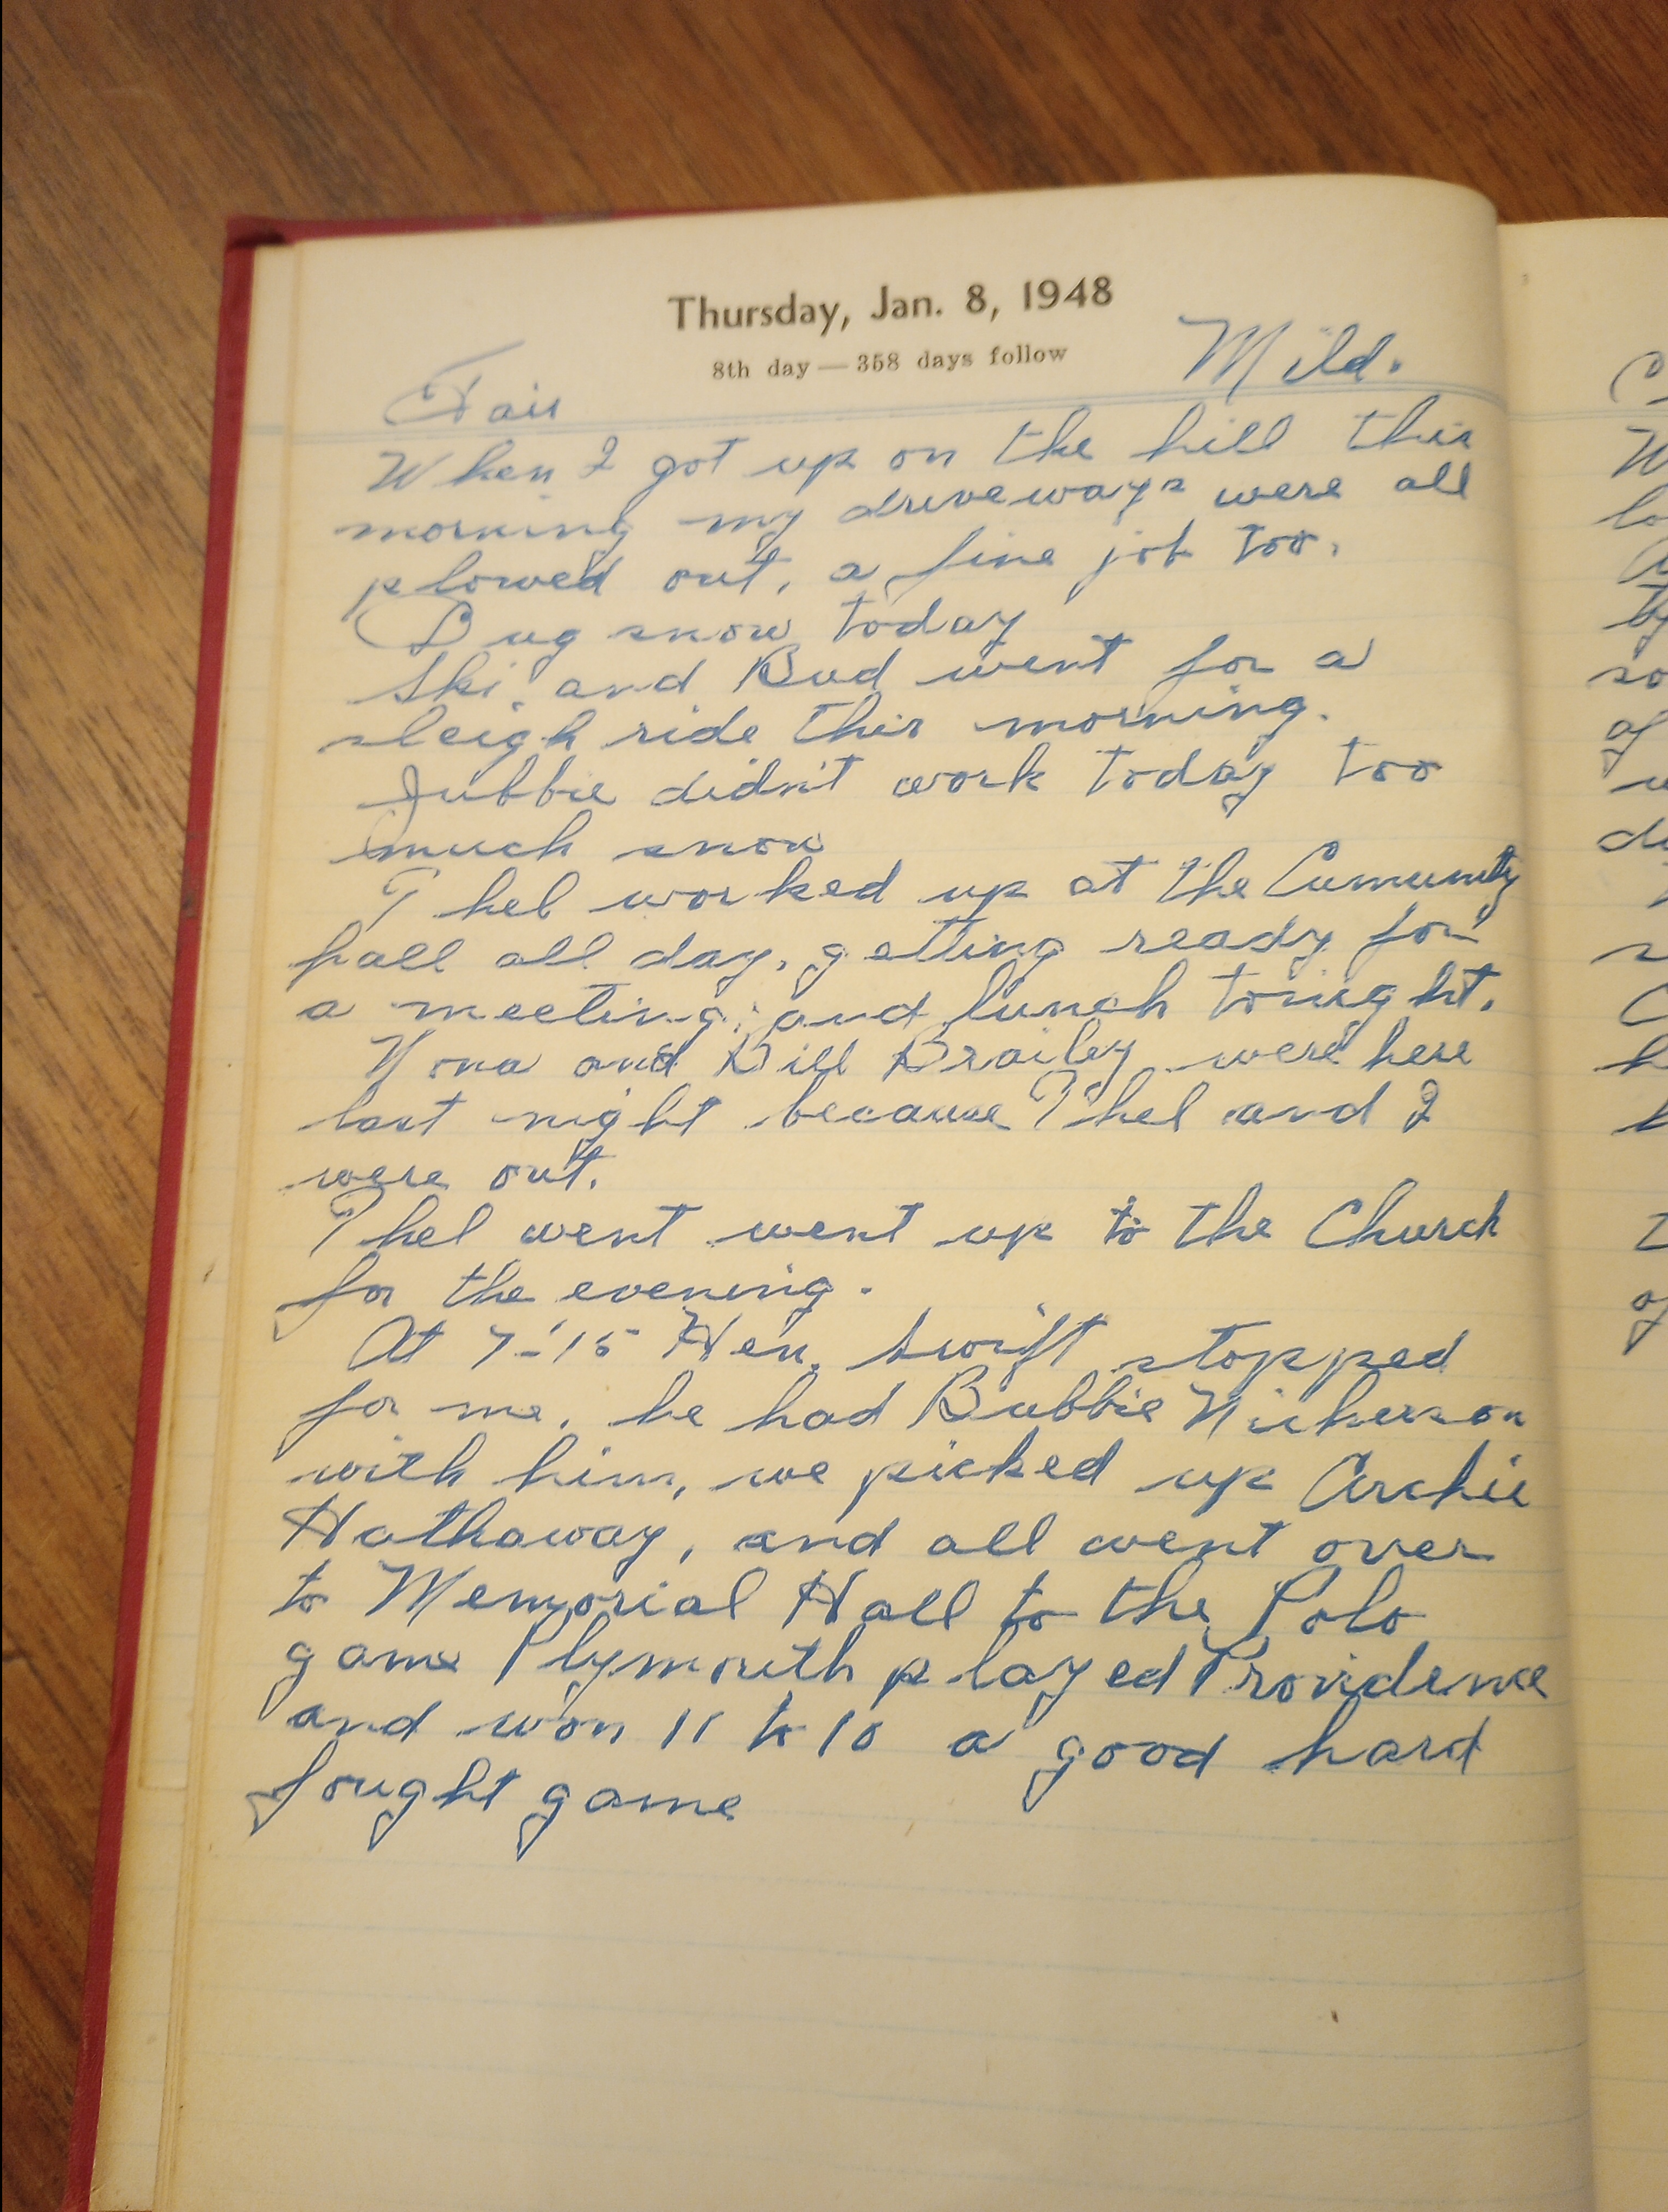 Thursday, Jan. 8, 1948
8th day — 358 days follow
Fair Mild.
When I got up on the hill this
morning my driveways were all
plowed out, a fine job too.
Dug snow today
Ski, and Bud went for a
sleigh ride this morning.
Jubbie didn't work today too
much snow
Thel worked up at the Cumunity
hall all day, getting ready for
a meeting, and lunch tonight.
Nona and Bill Brailey were here
last night because Thel and I
were out.
Thel went went up to the Church
for the evening.
At 7-15 Hen. Swift stopped
for me, he had Bubbie Nickerson
with him, we picked up Archie
Hathaway, and all went over
to Memorial Hall to the Polo
game Plymouth played Providence
and won 11 to 10 a good hard
fought game